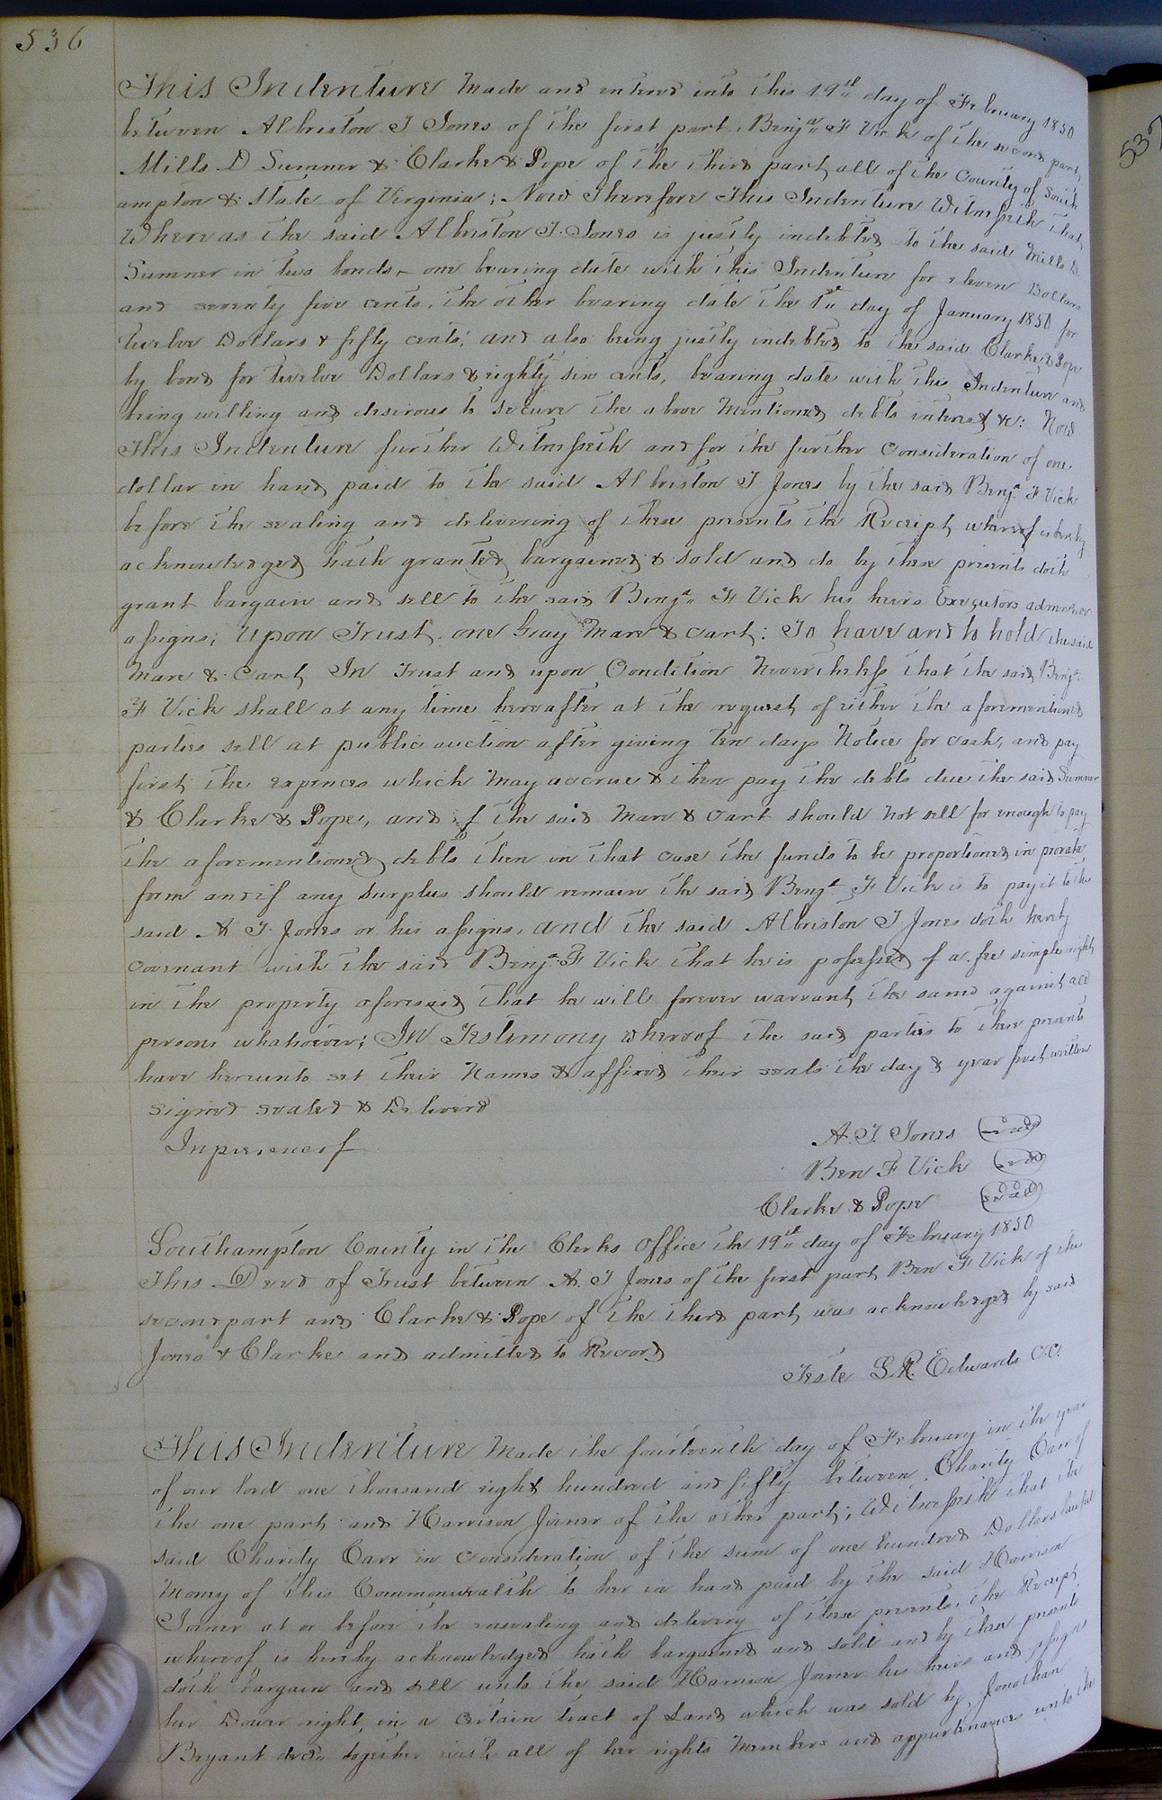 536
537
This Indenture Made and entered into this 19th day of February 1850
between Albriston T Jones of the first part Benjn F Vick of the second part
Mills D Sumner & Clarke & Pope of the third part, all of the County of South
ampton & State of Virginia; Now Therefore This Indenture Witnesseth that
Whereas the said Albriston T. Jones is justly indebted to the said Mills D.
Sumner in two bonds, one bearing date with this Indenture for eleven Dollars
and seventy five cents, the other bearing date the 1st day of January 1850 for
twelve Dollars & fifty cents; and also being justly indebted to the said Clarke & Pope
by bond for twelve Dollars & eighty six cents, bearing date with this Indenture and
being willing and desirous to secure the above Mentioned debts interest &c: Now
This Indenture further Witnesseth and for the further Consideration of one
dollar in hand paid to the said Albriston T Jones by the said Benjn F Vick
before the sealing and delivering of these presents the Receipt whereof is hereby
acknowledged hath granted bargained & sold and do by these presents doth
grant bargain and sell to the said Benjn F Vick his heirs Executors
assigns; Upon Trust, one Gray Mare & Cart: To have and to hold the said
Mare & Cart, In Trust and upon Condition Nevertheless that the said Benjn
F Vick shall at any time hereafter at the request of either the aforementioned
parties sell at public auction after giving ten days Notice for cash, and pay
first the expences which May accrue & then pay the debts due the said Sumner
& Clarke & Pope, and if the said Mare & Cart should not sell for enough to pay
the aforementioned debts then in that case the funds to be proportioned in prorata
form and if any surplus should remain the said Benjn F Vick is to pay it to the
said A T Jones or his assigns, and the said Albriston T Jones doth hereby
covenant with the said Benjn F Vick that he is possessed of a fee simple right
in the property aforesaid that he will forever warrant the same against all
persons whatsoever; In Testimony whereof the said parties to these presents
have hereunto set their Names & affixed their seals the day & year first written
signed sealed & Delivered
In presence of
A. T. Jones (seal)
Ben F Vick (seal)
Clarke & Pope (seal)
Southampton County in the Clerks Office the 19th day of February 1850
This Deed of Trust between A. T Jones of the first part Ben F Vick of the
second part and Clarke & Pope of the third part was acknowledged by said
Jones & Clarke and admitted to Record
Teste L R. Edwards CC.
This Indenture Made the fourteenth day of February in the year
of our lord one thousand eight hundred and fifty between Charity Carr of
the one part and Harrison Joiner of the other part; Witnesseth that the
said Charity Carr in Consideration of the sum of one hundred Dollars lawful
Money of this Commonwealth to her in hand paid by the said Harrison
Joiner at or before the ensealing and delivery of these presents, the Receipt
whereof is hereby acknowledged hath bargained and sold and by these presents
doth bargain and sell unto the said Harrison Joiner his heirs and assigns
her Dower right, in a certain tract of Land which was sold by Jonathan
Bryant decd. together with all of her rights Members and appurtenances unto the